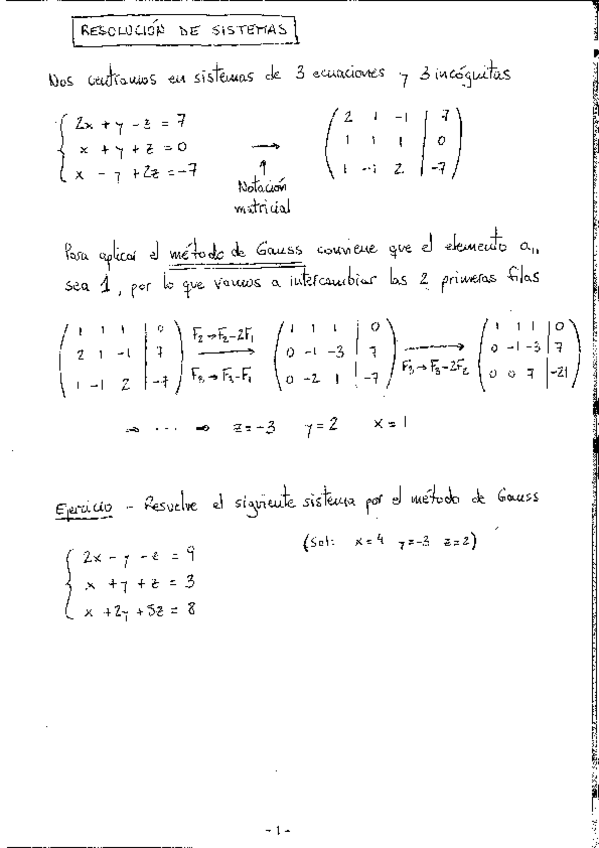 RESOLUCIÓN DE SISTEMAS
Nos centramos en sistemas de 3 ecuaciones y 3 incógnitas
2x + y - z = 7
x + y + z = 0
x - y + 2z = -7
→
Notación
matricial
2 1 -1 | 7
1 1 1 | 0
1 -1 2 | -7
Para aplicar el método de Gauss conviene que el elemento a₁₁
sea 1, por lo que vamos a intercambiar las 2 primeras filas
1 1 1 | 0
2 1 -1 | 7
1 -1 2 | -7
F₂→F₂-2F₁
F₃→F₃-F₁
1 1 1 | 0
0 -1 -3 | 7
0 -2 1 | -7
F₃→F₃-2F₂
1 1 1 | 0
0 -1 -3 | 7
0 0 7 | -21
⇒ ... ⇒ z=-3 y=2 x=1
Ejercicio - Resuelve el siguiente sistema por el método de Gauss
(Sol: x=4 y=-3 z=2)
2x - y - z = 9
x + y + z = 3
x + 2y + 5z = 8
- 1 -